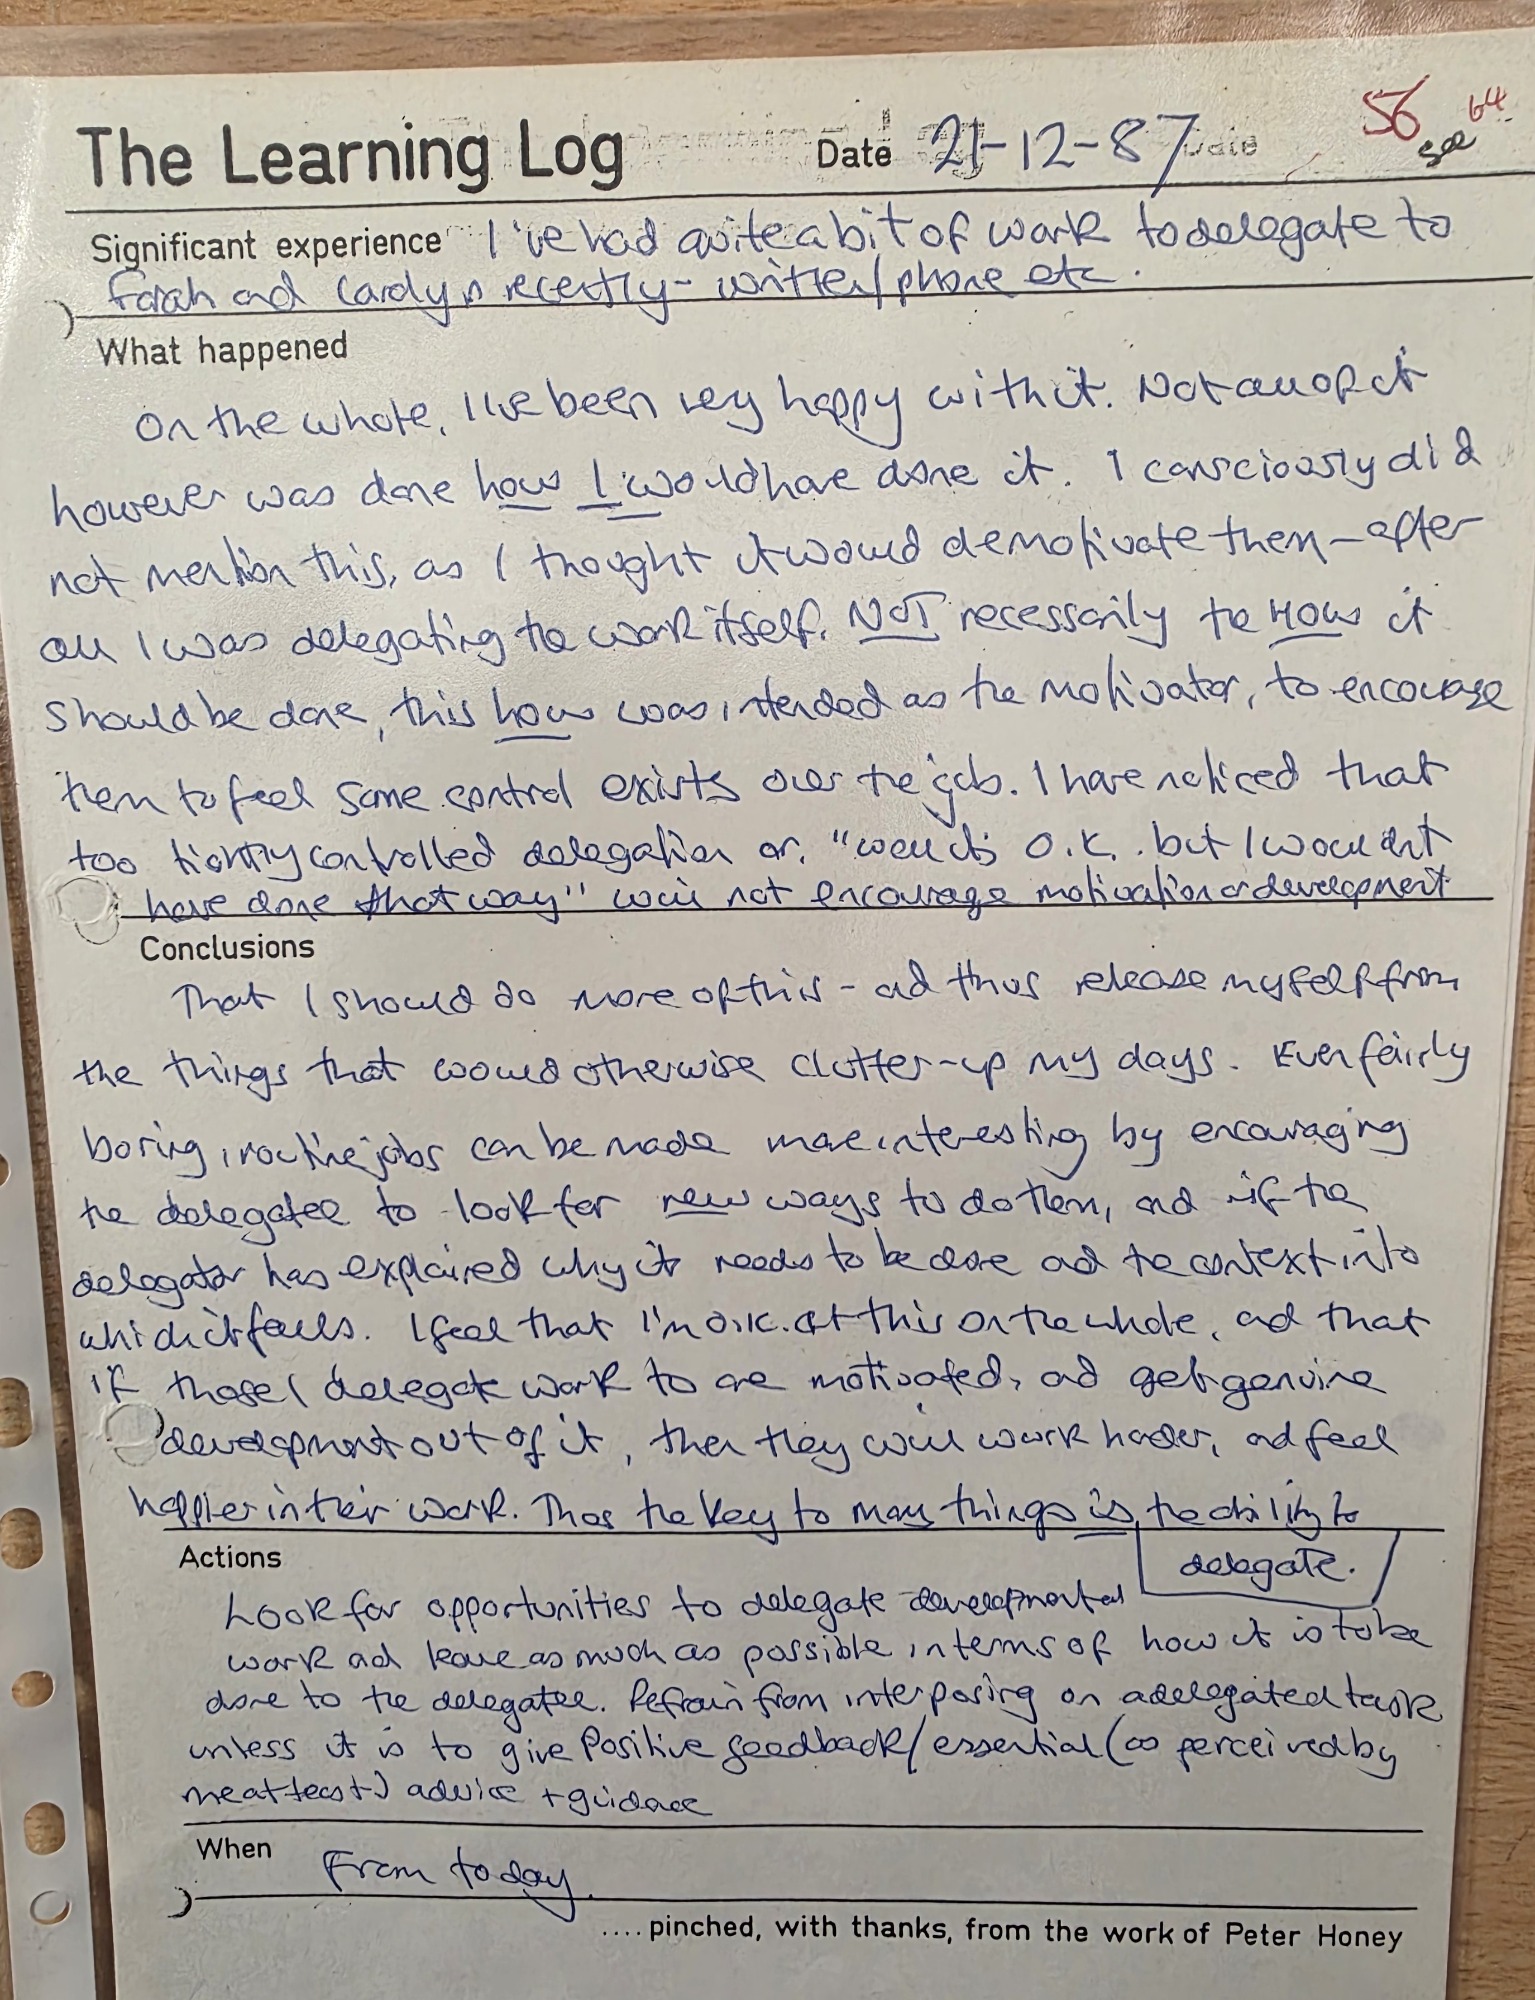 The Learning Log Date 21-12-87 56 see 64
Significant experience I've had quite a bit of work to delegate to
Farah and Carolyn recently - written/phone etc.
What happened
On the whole, I've been very happy with it. Not all of it
however was done how I would have done it. I consciously did
not mention this, as I thought it would demotivate them - after
all I was delegating the work itself, NOT necessarily the HOW it
should be done, this how was intended as the motivator, to encourage
them to feel some control exists over the job. I have noticed that
too tightly controlled delegation or, "well its O.K. but I wouldn't
have done that way" will not encourage motivation or development
Conclusions
That I should do more of this - and thus release myself from
the things that would otherwise clutter-up my days. Even fairly
boring, routine jobs can be made more interesting by encouraging
the delegatee to look for new ways to do them, and if the
delegator has explained why it needs to be done and the context into
which it falls. I feel that I'm O.K. at this on the whole, and that
if those I delegate work to are motivated, and get genuine
development out of it, then they will work harder, and feel
happier in their work. Thus the key to many things is the ability to
delegate.
Actions
Look for opportunities to delegate developmental
work and leave as much as possible in terms of how it is to be
done to the delegatee. Refrain from interposing on a delegated task
unless it is to give positive feedback/essential (as perceived by
me at least) advice + guidance
When From today.
.... pinched, with thanks, from the work of Peter Honey